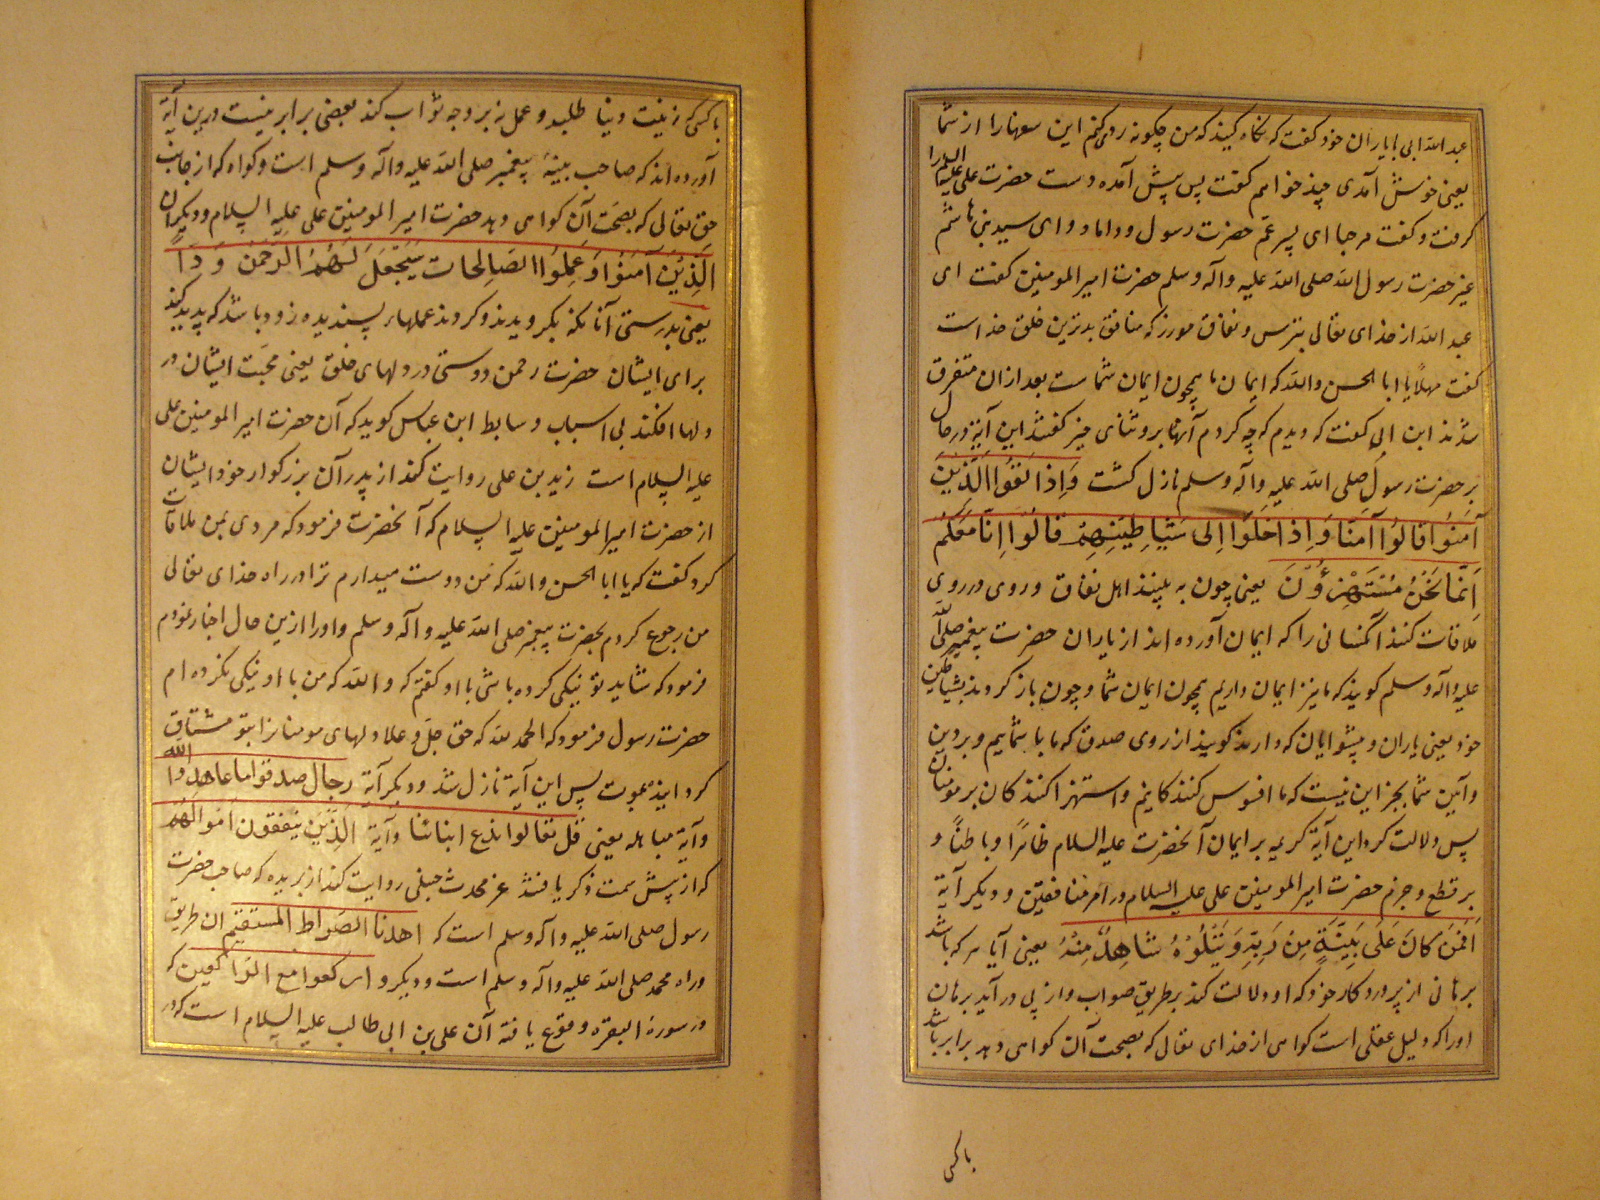 عبد الله ابی با یاران خود گفت که نگاه کنید که من چگونه رد می‌کنم این سفها را از شما
یعنی خوش آمدی چند خواهم گفت پس پیش آمده دست حضرت علی علیه السلام را
گرفت و گفت مرحبا ای پسر عم حضرت رسول و داماد او ای سید بنی هاشم
غیر حضرت رسول الله صلی الله علیه وآله وسلم حضرت امیر المومنین گفت ای
عبد الله از خدای تعالی بترس و نفاق مورز که منافق بدترین خلق خداست
گفت مهلا یا ابا الحسن والله که ایمان ما همچون ایمان شماست بعد از ان متفرق
شدند ابن ابی گفت که دیدم که چه کردم آنها برو ثنای خیر گفتند این آیة در حال
بر حضرت رسول صلی الله علیه وآله وسلم نازل گشت وَاِذا لَقُوا الَّذینَ
آمَنُوا قالُوا آمَنّا وَاِذا خَلَوْا اِلی شَیاطینِهِمْ قالُوا اِنّا مَعَکُمْ
اِنَّما نَحْنُ مُسْتَهْزِؤُنَ یعنی چون به بینند اهل نفاق و روی در روی
ملاقات کنند آنکسانی را که ایمان آورده اند از یاران حضرت پیغمبر صلی الله
علیه وآله وسلم گویند که ما نیز ایمان داریم همچون ایمان شما و چون باز گردند بشیاطین
خود یعنی یاران و پیشوایان که دارند گویند از روی صدق که ما با شمائیم و بر دین
و آیین شما بجز این نیست که ما افسوس کنندگانیم و استهزا کنندگان بر مومنان
پس دلالت کرد این آیة کریمه بر ایمان آنحضرت علیه السلام ظاهرًا و باطنًا و
بر قطع و جزم حضرت امیر المومنین علی علیه السلام در امر منافقین و دیگر آیة
اَفَمَنْ کانَ عَلی بَیِّنَةٍ مِنْ رَبِّهِ وَیَتْلُوهُ شاهِدٌ مِنْهُ یعنی آیا هر که باشد
بر هانی از پروردگار خود که او دلالت کند بر طریق صواب و از پی در آید برهان
او را که دلیل عقلی است گواهی از خدای تعالی که بصحت آن گواهی دهد برابر باشد
با کسی
با کسی که زینت دنیا طلبد و عمل نه بر وجه ثواب کند بعضی برابر نیست و درین آیة
آورده اند که صاحب بینة پیغمبر صلی الله علیه وآله وسلم است و گواه که از جانب
حق تعالی که بصحت آن گواهی دهد حضرت امیر المومنین علی علیه السلام و دیگر ان
الَّذینَ آمَنُوا وَعَمِلُوا الصّالِحات سَیَجْعَلُ لَهُمُ الرَّحْمنُ وُدّاً
یعنی بدرستی آنانکه بگرویدند و کردند عملهاء پسندیده زود باشد که پدید کند
برای ایشان حضرت رحمن دوستی در دلهای خلق یعنی محبت ایشان در
دلها افکند بی اسباب و سابط ابن عباس گوید که آن حضرت امیر المومنین علی
علیه السلام است زید بن علی روایت کند از پدران بزرگوار خود ایشان
از حضرت امیر المومنین علیه السلام که آنحضرت فرمود که مردی بمن ملاقات
کرد گفت که یا ابا الحسن والله که من دوست میدارم ترا در راه خدای تعالی
من رجوع کردم بحضرت پیغمبر صلی الله علیه وآله وسلم و او را ازین حال اخبار نمودم
فرمود که شاید تو نیکی کرده باشی با او گفتم که والله که من با او نیکی نکرده ام
حضرت رسول فرمود که الحمد لله که حق جل و علا دلهای مومنان را بتو مشتاق
گردانید بموت پس این آیة نازل شد و دیگر آیة رجال صدقوا ما عاهدوا الله
و آیة مباهله یعنی قُل تعالوا ندع ابنائنا و آیة الَّذینَ ینفقون اموالَهُم
که از پیش سمت ذکر یافتند عز محدث حنبلی روایت کند از بریده که صاحب حضرت
رسول صلی الله علیه وآله وسلم است که اهدنا الصراط المستقیم ان طریق
و راه محمد صلی الله علیه وآله وسلم است و دیگر وارکعوا مع الراکعین که
در سورة البقره وقوع یافته آن علی بن ابی طالب علیه السلام است که در